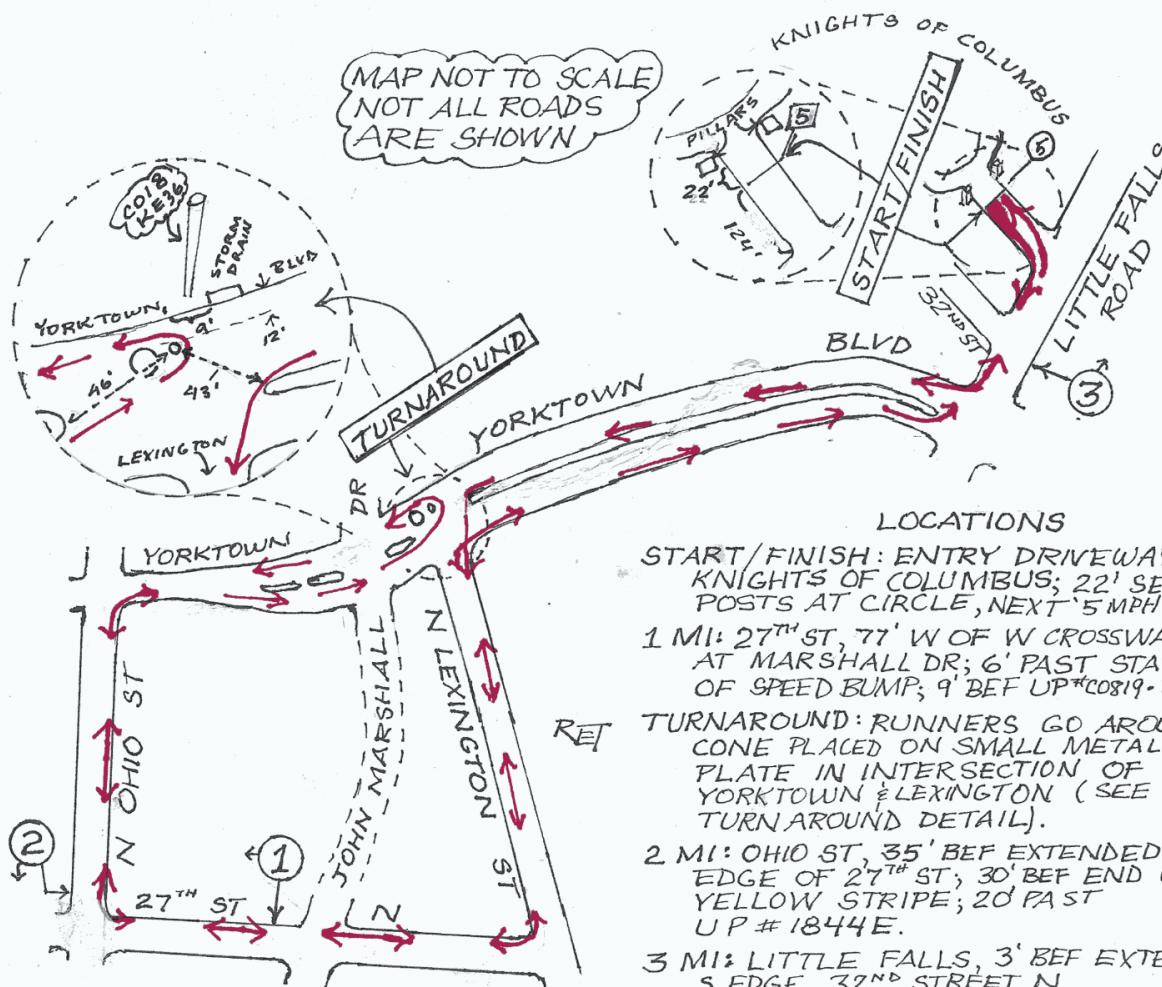 KNIGHTS OF COLUMBUS
MAP NOT TO SCALE
NOT ALL ROADS
ARE SHOWN
PILLARS
5
22'
124'
START/FINISH
5
LITTLE FALLS
ROAD
32ND ST
3
CO18
KE36
STORM
DRAIN
BLVD
YORKTOWN
9'
12'
46'
43'
LEXINGTON
TURNAROUND
YORKTOWN
BLVD
DR
YORKTOWN
N OHIO ST
JOHN MARSHALL
N LEXINGTON ST
2
1
27TH ST
N
RET
LOCATIONS
START/FINISH: ENTRY DRIVEWAY
KNIGHTS OF COLUMBUS; 22' SE
POSTS AT CIRCLE, NEXT 5 MPH
1 MI: 27TH ST, 77' W OF W CROSSWA
AT MARSHALL DR; 6' PAST STA
OF SPEED BUMP; 9' BEF UP #CO819-
TURNAROUND: RUNNERS GO AROU
CONE PLACED ON SMALL METAL
PLATE IN INTERSECTION OF
YORKTOWN & LEXINGTON (SEE
TURNAROUND DETAIL).
2 MI: OHIO ST, 35' BEF EXTENDED
EDGE OF 27TH ST; 30' BEF END
YELLOW STRIPE; 20' PAST
UP # 1844E.
3 MI: LITTLE FALLS, 3' BEF EXTE
S EDGE 32ND STREET N